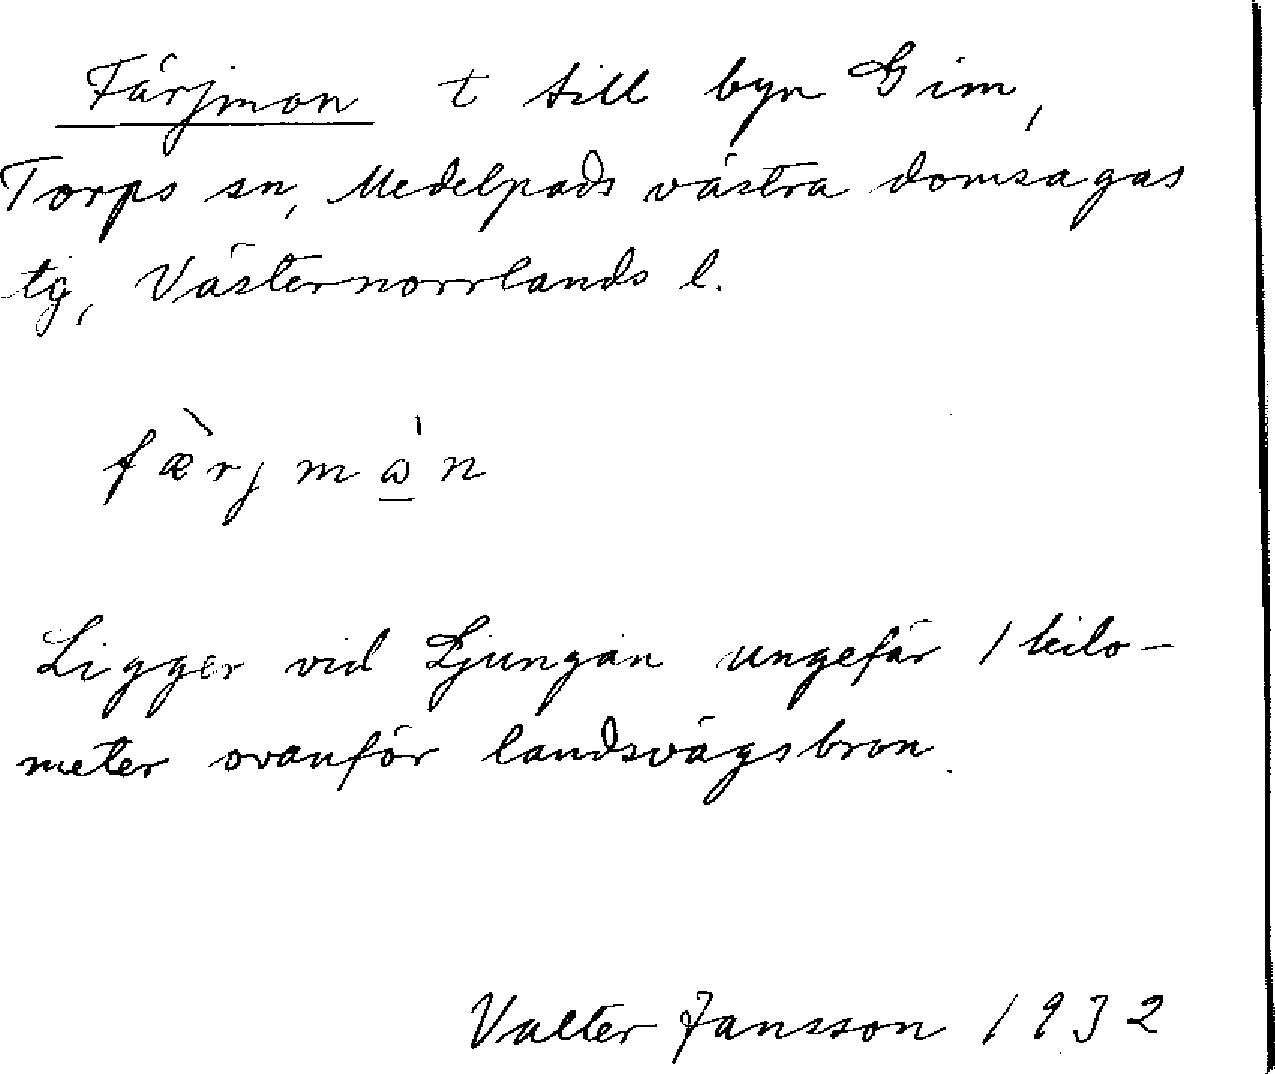 Färjmon t till byn Gim,
Torps sn, Medelpads västra domsagas
tg, Västernorrlands l.
fæ̀rjmɷ̲̀n
Ligger vid Ljungan ungefär 1 kilo-
meter ovanför landsvägsbron.
Valter Jansson 1932